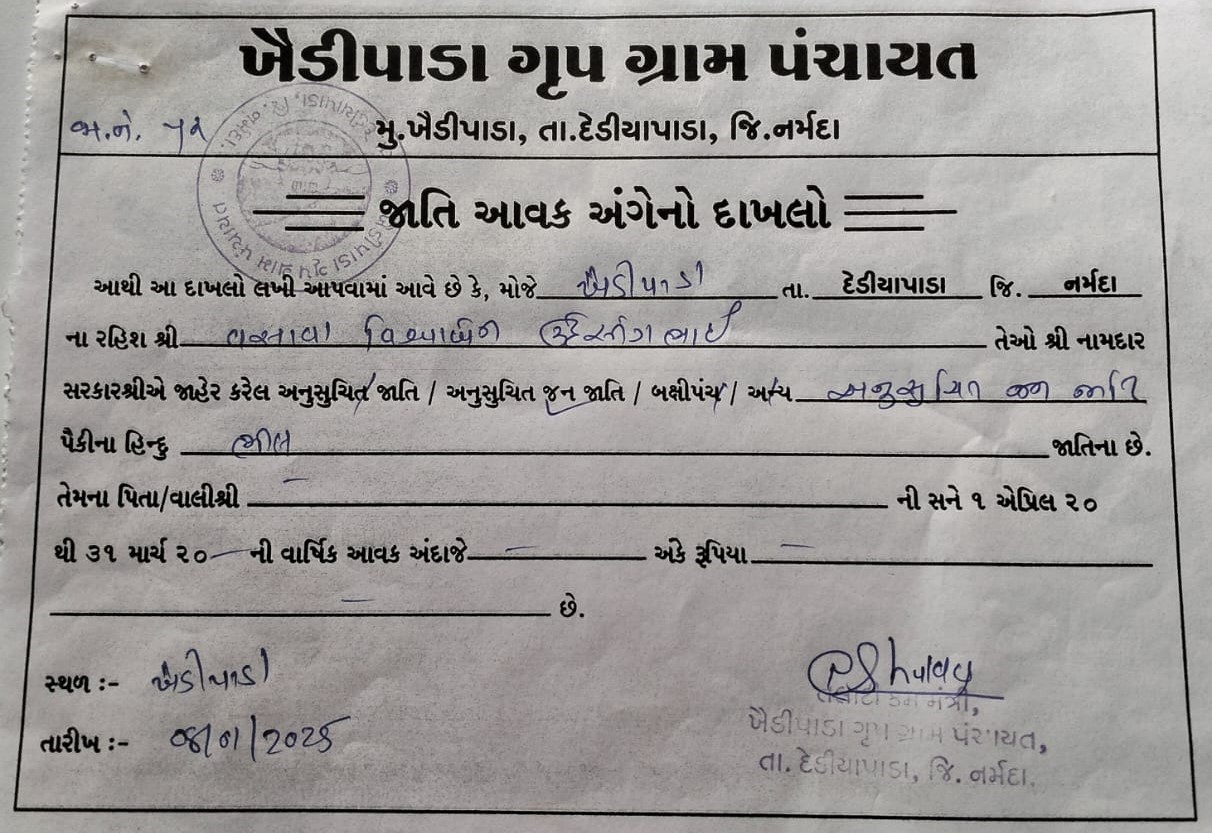 ખૈડીપાડા ગૃપ ગ્રામ પંચાયત
જા.નં. ૧૨ મુ.ખૈડીપાડા, તા.દેડીયાપાડા, જિ.નર્મદા
જાતિ આવક અંગેનો દાખલો
આથી આ દાખલો લખી આપવામાં આવે છે કે, મોજે ખૈડીપાડા તા. દેડીયાપાડા જિ. નર્મદા
ના રહિશ શ્રી વસાવા તેઓ શ્રી નામદાર
સરકારશ્રીએ જાહેર કરેલ અનુસુચિત જાતિ / અનુસુચિત જન જાતિ / બક્ષીપંચ / અન્ય અનુસુચિત જન જાતિ
પૈકીના હિન્દુ ભીલ જાતિના છે.
તેમના પિતા/વાલીશ્રી — ની સને ૧ એપ્રિલ ૨૦
થી ૩૧ માર્ચ ૨૦ — ની વાર્ષિક આવક અંદાજે — અંકે રૂપિયા —
— છે.
સ્થળ :- ખૈડીપાડા
તારીખ :-
તલાટી કમ મંત્રી,
ખૈડીપાડા ગૃપ ગ્રામ પંચાયત,
તા. દેડીયાપાડા, જિ. નર્મદા.